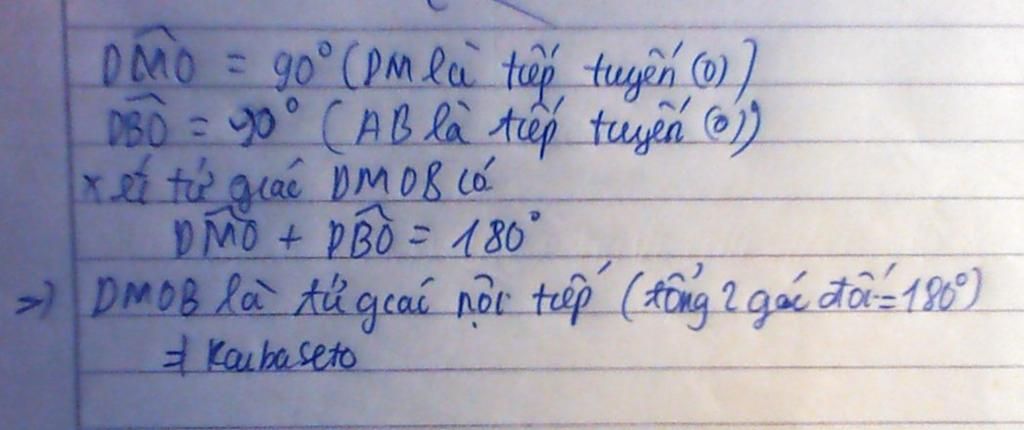 DM̂O = 90° (DM là tiếp tuyến (O))
DB̂O = 90° (AB là tiếp tuyến (O))
xét tứ giác DMOB có
DM̂O + DB̂O = 180°
=) DMOB là tứ giác nội tiếp (tổng 2 góc đối = 180°)